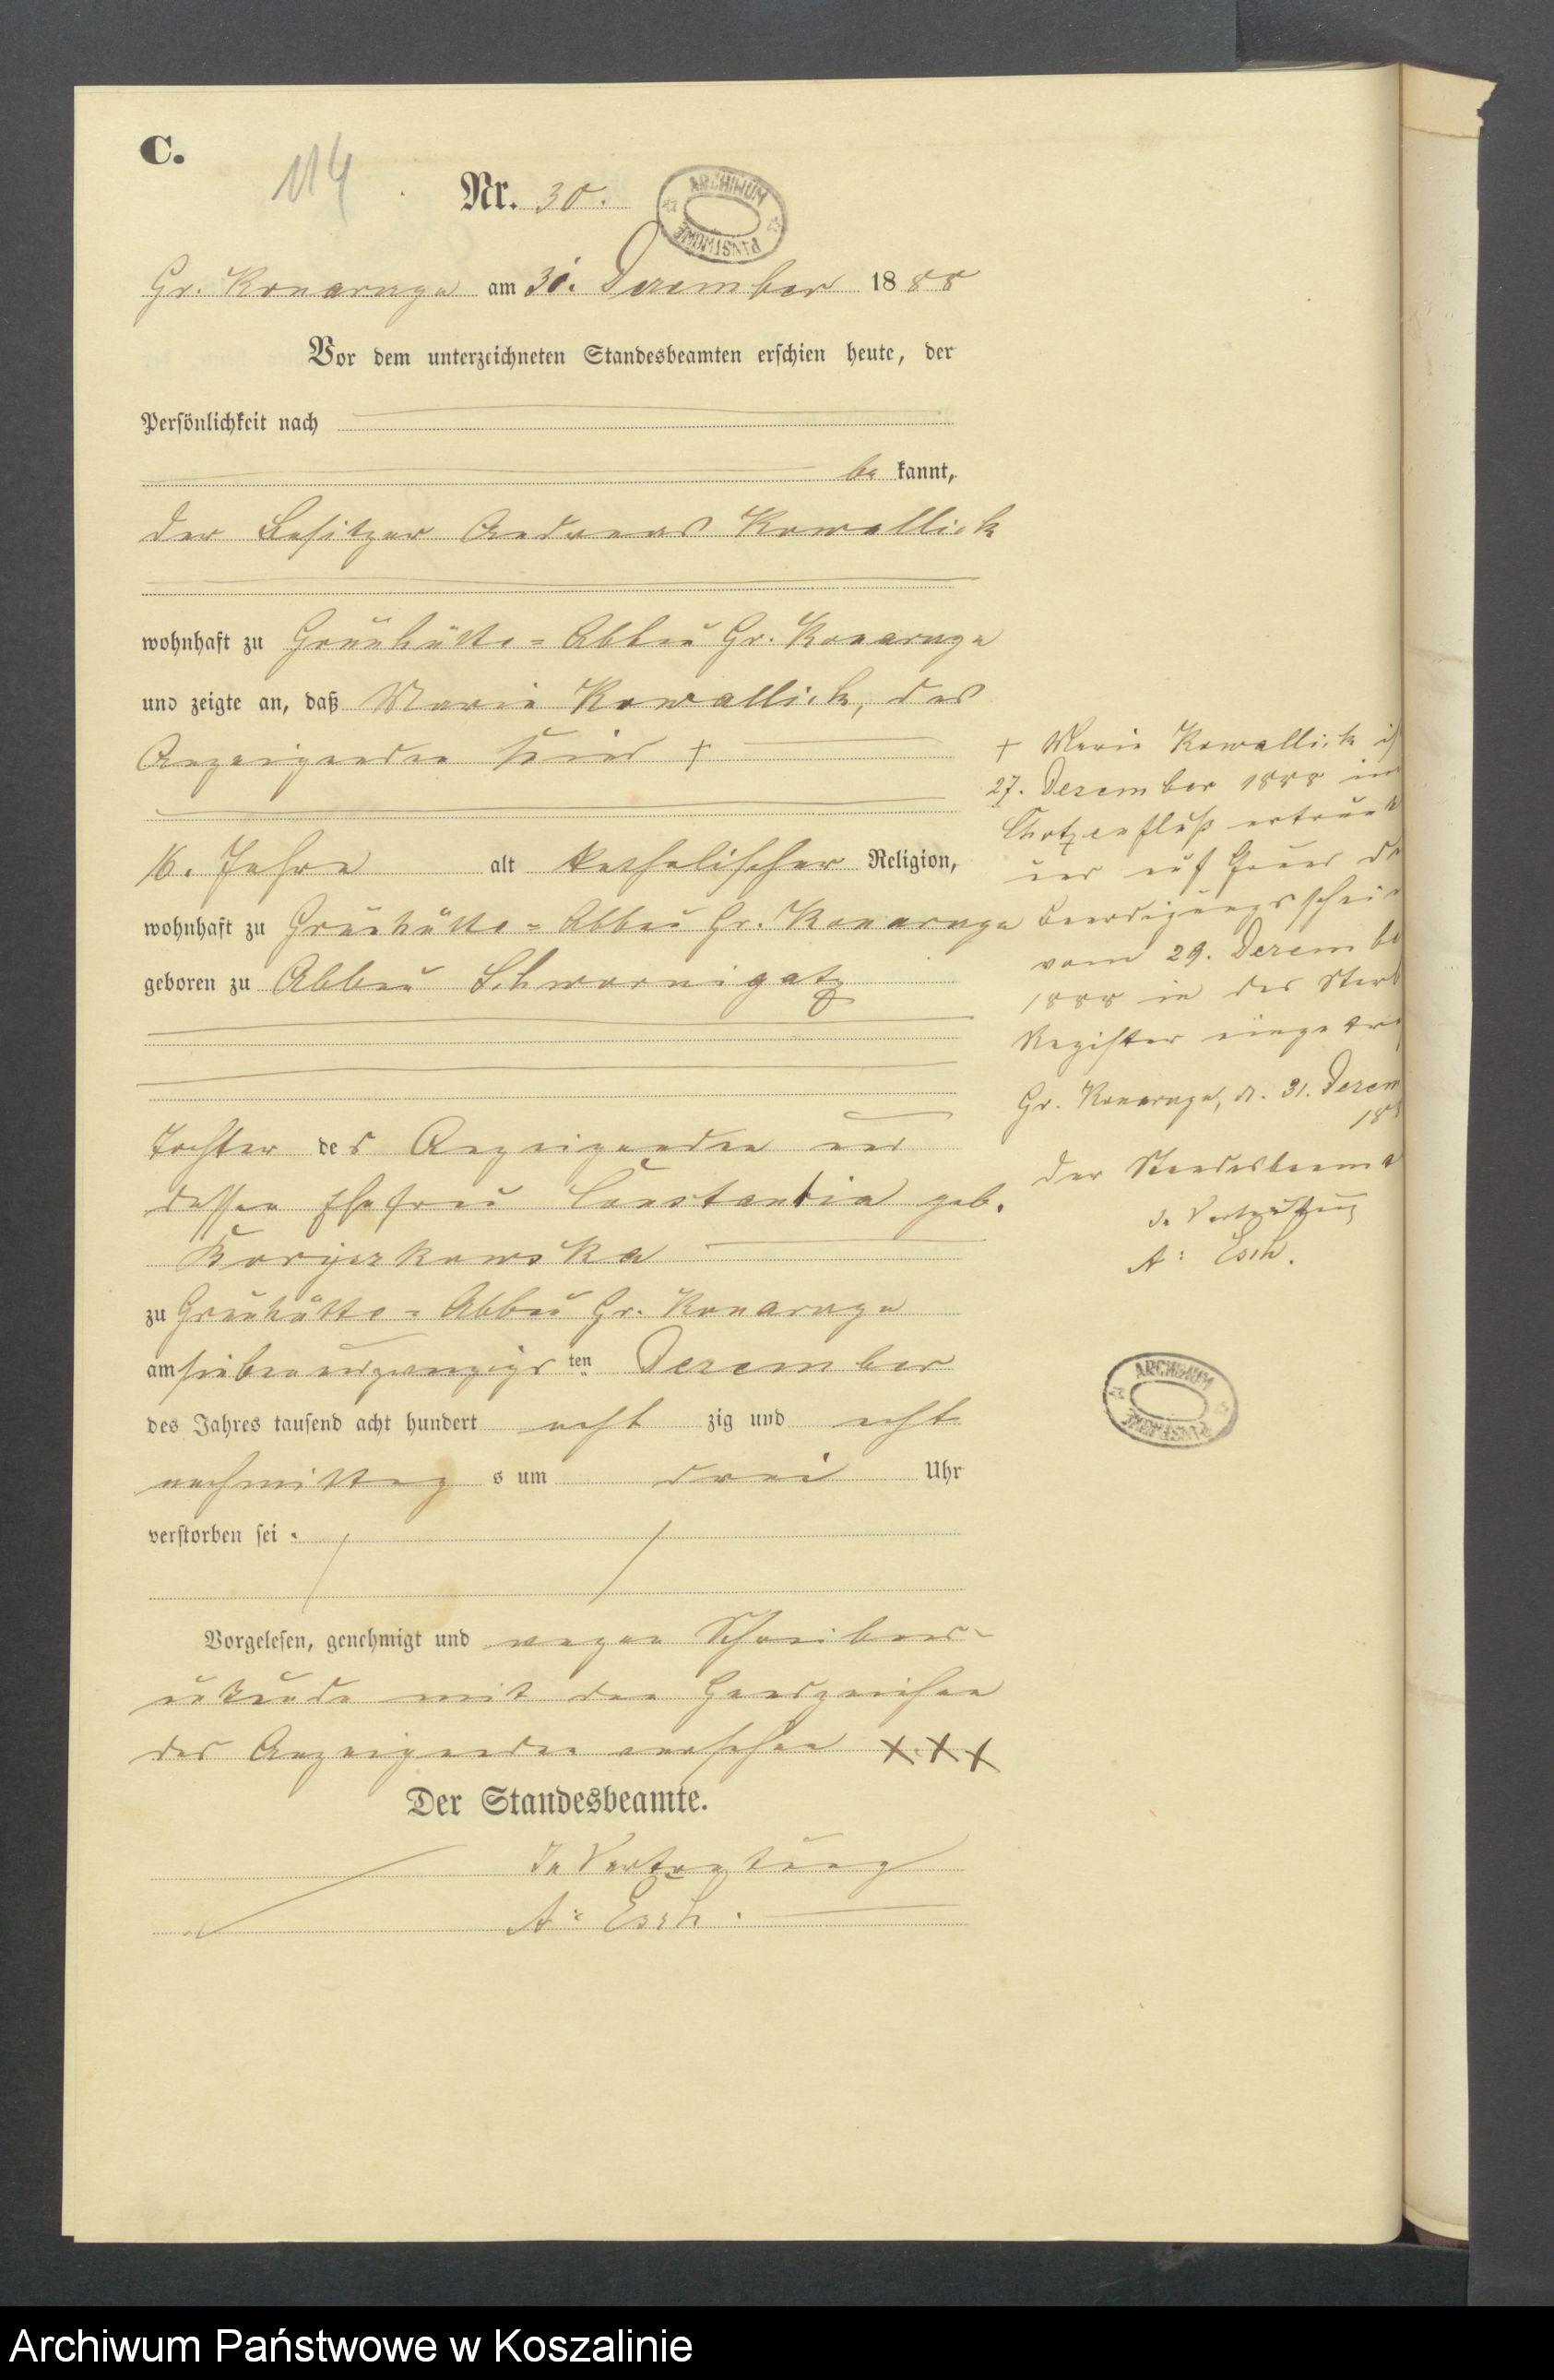 C.
114
Nr. 30.
ARCHIWUM PAŃSTWOWE
Gr. Konarczyn am 31. Dezember 1888
Vor dem unterzeichneten Standesbeamten erschien heute, der
Persönlichkeit nach
be kannt,
der Besitzer Andreas Kowallick
wohnhaft zu Grünhütte=Abbau Gr. Konarczyn
und zeigte an, daß Marie Kowallick, des
Anzeigenden Kind +
16. Jahre alt katholischer Religion,
wohnhaft zu Grünhütte=Abbau Gr. Konarczyn
geboren zu Abbau Schwornigatz
Tochter des Anzeigenden und
dessen Ehefrau Constantia geb.
zu Grünhütte=Abbau Gr. Konarczyn
am siebenundzwanzigs ten Dezember
des Jahres tausend acht hundert acht zig und acht
nachmittag s um drei Uhr
verstorben sei.
Vorgelesen, genehmigt und wegen Schreibens-
unkunde mit den Handzeichen
des Anzeigenden versehen XXX
Der Standesbeamte.
In Vertretung
A. Esch.
+ Marie Kowallick is
27. Dezember 1888 im
Chotzenfluß ertrunk
und auf Grund de
Beerdigungsschein
vom 29. Dezembe
1888 in das Sterb
Register eingetra
Gr. Konarczyn, d. 31. Dezem
188
Der Standesbeamt
In Vertretung
A. Esch.
ARCHIWUM PAŃSTWOWE
Archiwum Państwowe w Koszalinie